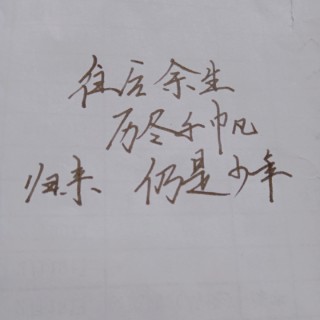 往后余生
历尽千帆
归来 仍是少年